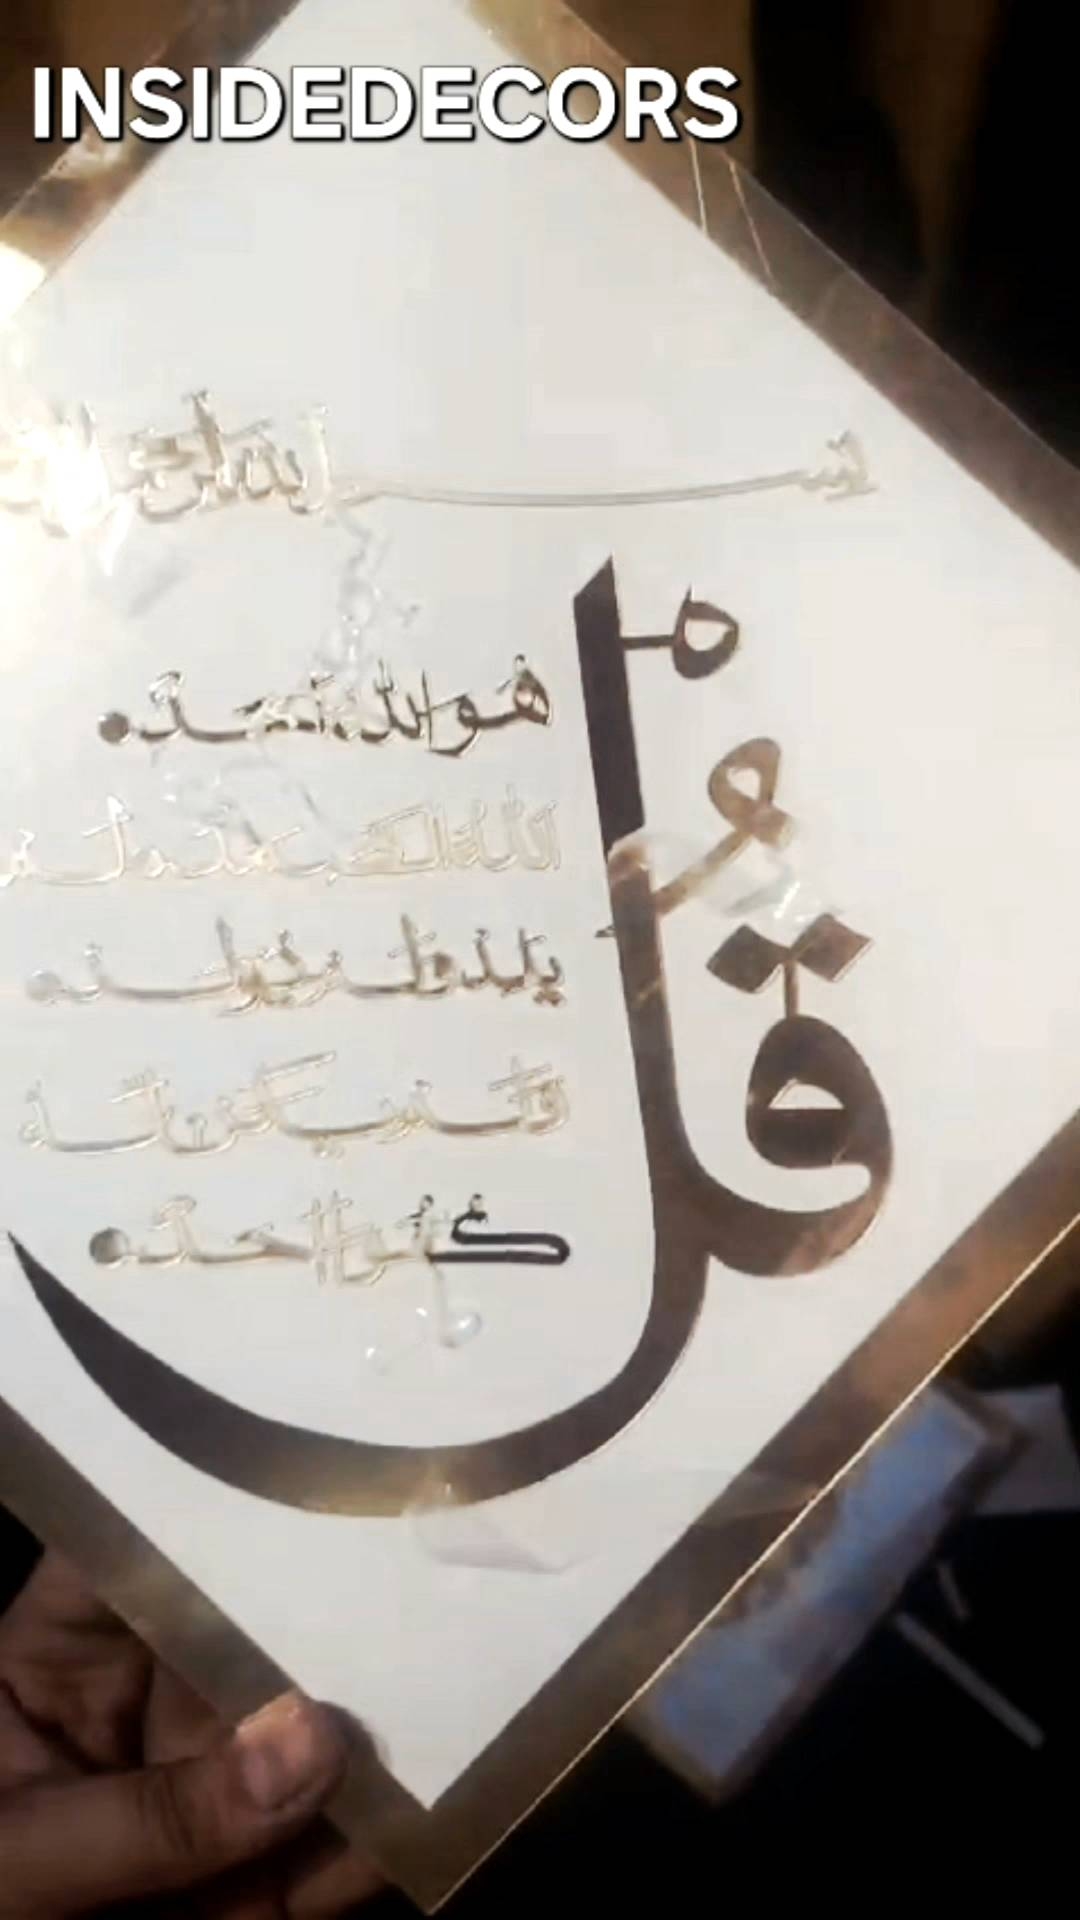 INSIDEDECORS
بسم الله الرحمن
قُلْ
هو الله احد
الله الصمد لم
يلد ولم يولد
ولم يكن له
كفوا احد